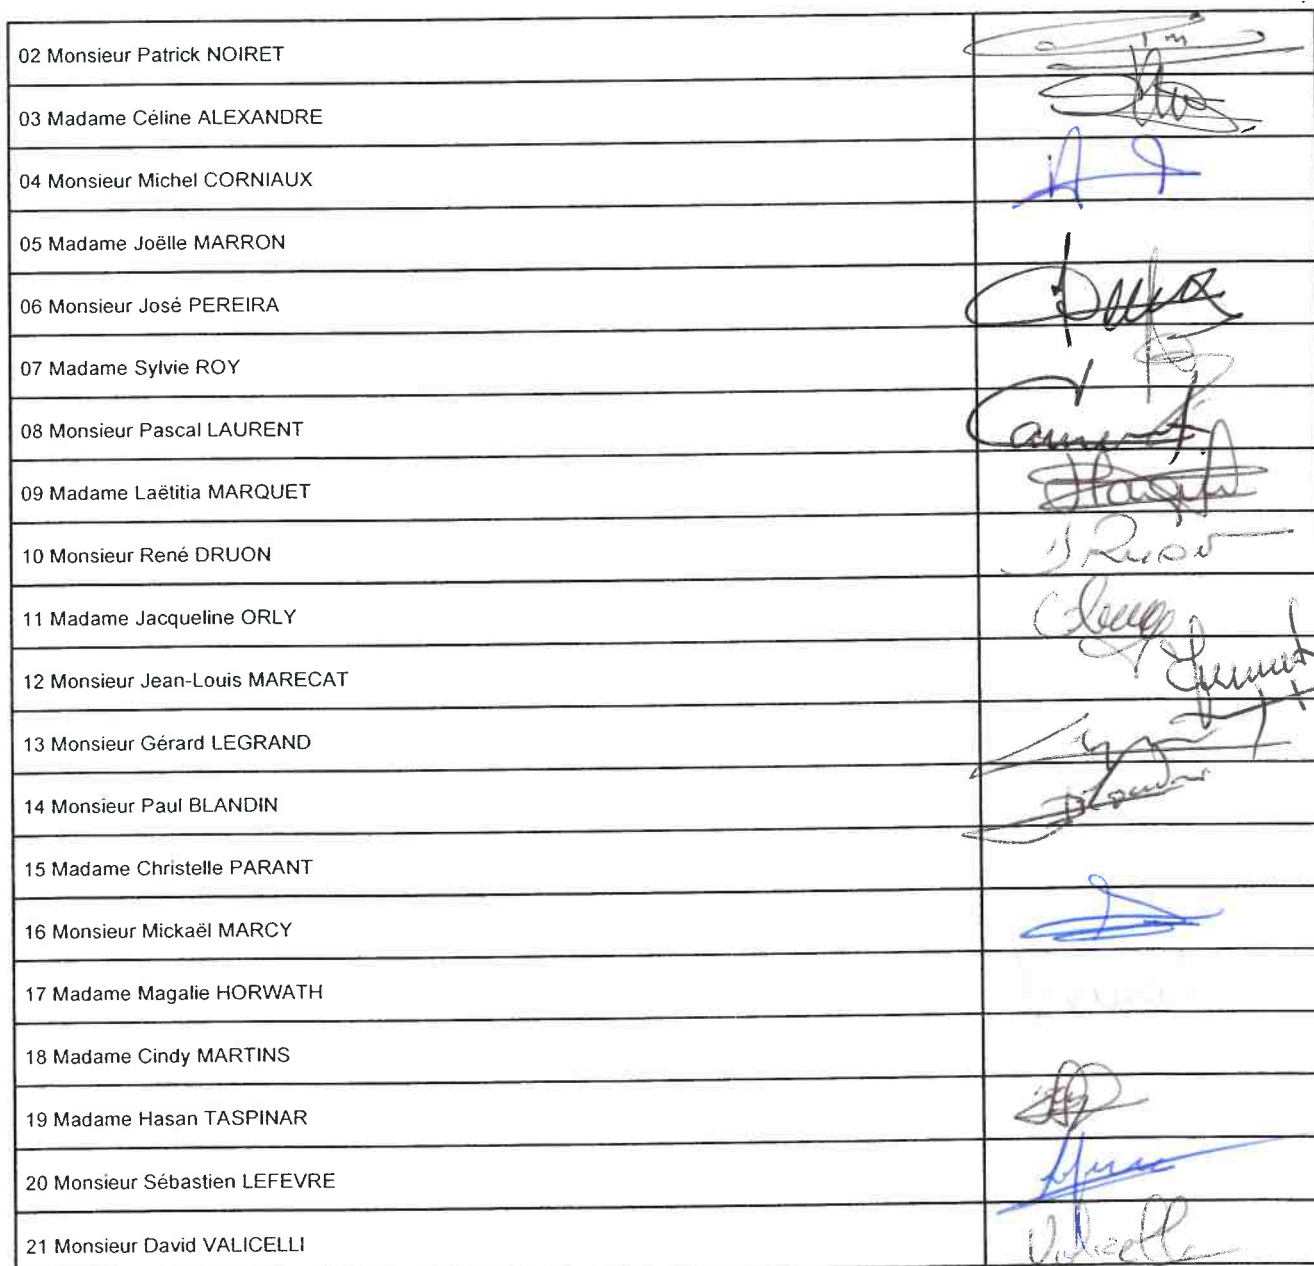 02 Monsieur Patrick NOIRET
03 Madame Céline ALEXANDRE
04 Monsieur Michel CORNIAUX
05 Madame Joëlle MARRON
06 Monsieur José PEREIRA
07 Madame Sylvie ROY
08 Monsieur Pascal LAURENT
09 Madame Laëtitia MARQUET
10 Monsieur René DRUON
11 Madame Jacqueline ORLY
12 Monsieur Jean-Louis MARECAT
13 Monsieur Gérard LEGRAND
14 Monsieur Paul BLANDIN
15 Madame Christelle PARANT
16 Monsieur Mickaël MARCY
17 Madame Magalie HORWATH
18 Madame Cindy MARTINS
19 Madame Hasan TASPINAR
20 Monsieur Sébastien LEFEVRE
21 Monsieur David VALICELLI